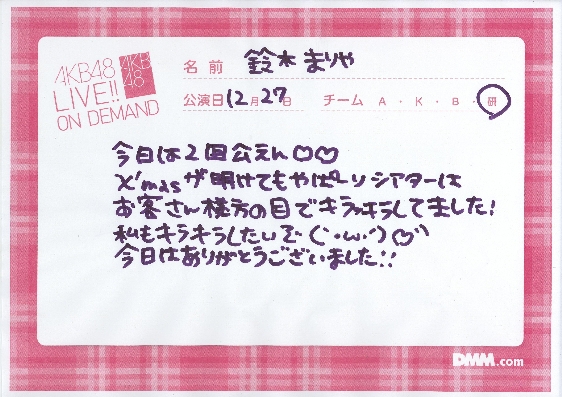 AKB48
LIVE!!
ON DEMAND
AKB
48
名前 鈴木まりや
公演日 12月27日 チーム A・K・B・研
今日は2回公えん♡♡
X'masが明けてもやぱーりシアターは
お客さん様方の目でキラッキラしてました!
私もキラキラしたいぞ(´・ω・`)♡
今日はありがとうございました!!
DMM.com